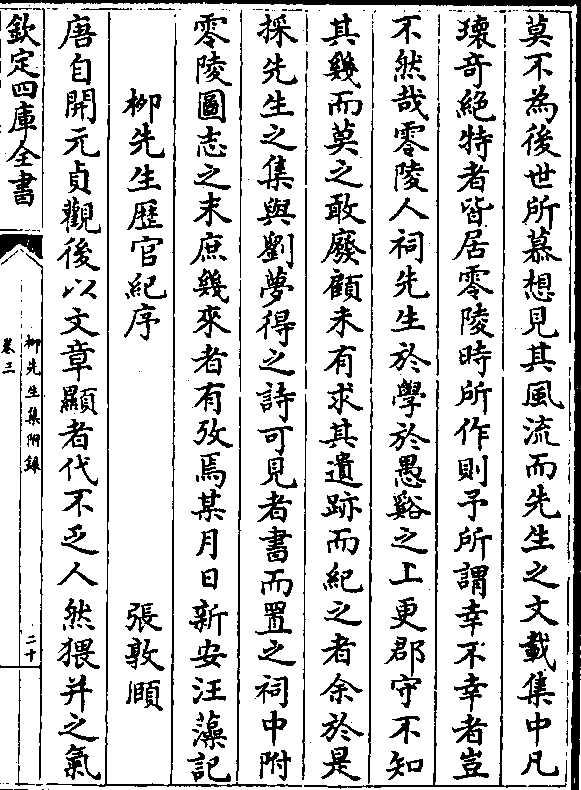 莫不為後世所慕想見其風流而先生之文載集中凡
瓌奇絶特者皆居零陵時所作則予所謂幸不幸者豈
不然哉零陵人祠先生於學於愚谿之上更郡守不知
其幾而莫之敢廢顧未有求其遺跡而紀之者余於是
採先生之集與劉夢得之詩可見者書而置之祠中附
零陵圖志之末庶幾來者有攷焉某月日新安汪藻記
柳先生歴官紀序　張敦頤
唐自開元貞觀後以文章顯者代不乏人然猥并之氣
欽定四庫全書
柳先生集附録
卷三
二十